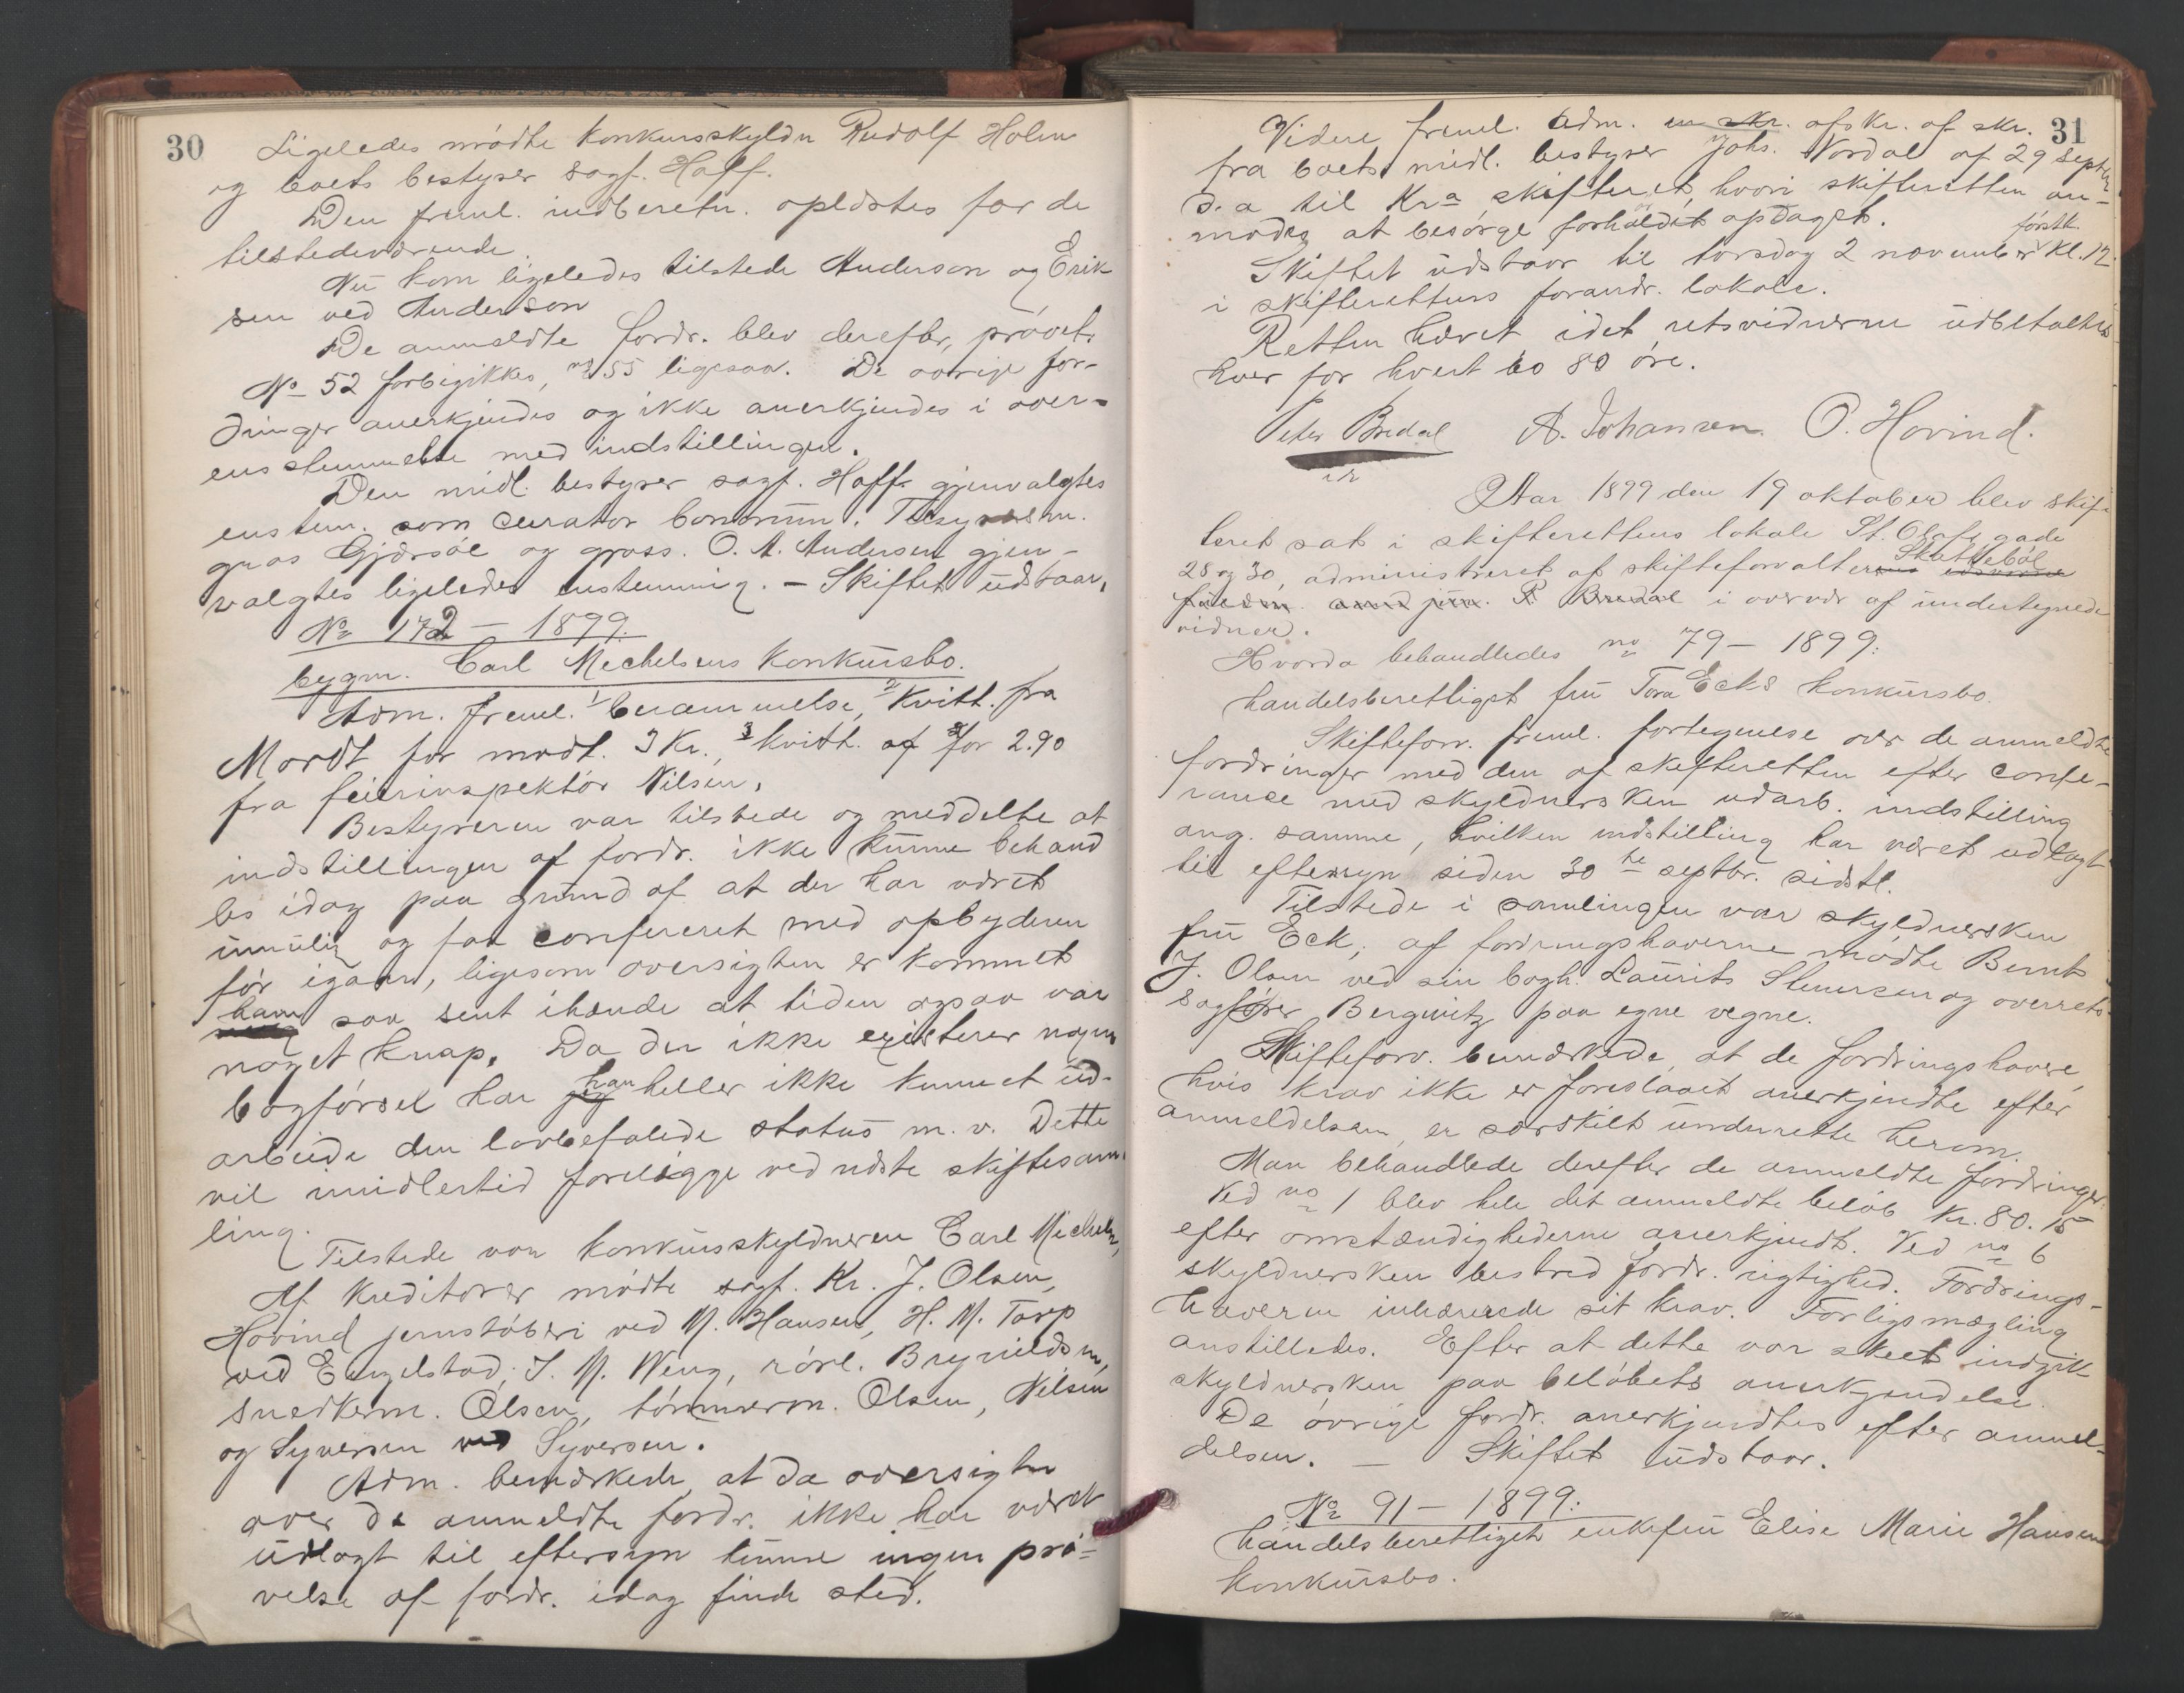 30
Ligeledes mødte konkursskyldn Rudolf Holm
og boets bestyrer sagf. Hoff.
Den freml. indberetn. oplæstes for de
tilstedeværende.
Nu kom ligeledes tilstede Anderson og Erik
sen ved Anderson
De anmeldte fordr. blev derefter prøvet.
No 52 forbigikkes, no 55 ligesaa. De øvrige for-
dringer anerkjendes og ikke anerkjendes i over-
ensstemmelse med indstillingen.
Den midl. bestyrer sagf. Hoff gjenvalgtes
enstem. som curator bonorum. Tilsynsm.
gros Gjersøe og gross. O. A. Andersen gjen-
valgtes ligeledes enstemmig. – Skiftet udstaar.
No 172 – 1899.
bygm. Carl Mechelsens konkursbo.
Adm. freml. 1 berammelse, 2 kvitt. fra
Mordt for modt. 3 Kr., 3 kvitt. af for 2.90
fra feierinspektør Nilsen.
Bestyreren var tilstede og meddelte at
indstillingen af fordr. ikke kunne behand
les idag paa grund af at der har været
umulig og faa confereret med opbyderen
før igaar, ligesom oversigten er kommet
ham saa sent ihænde at tiden ogsaa var
noget knap. Da der ikke existerer nogen
bogførsel har jeg han heller ikke kunnet ud-
arbeide den lovbefalede status m.v. Dette
vil imidlertid foreligge ved næste skiftesam
ling.
Tilstede var konkursskyldneren Carl Mechels,
Af kreditorer mødte sagf. Kr. J. Olsen,
Hovind jernstøberi ved M. Hansen, H. M. Torp
ved Engelstad, J. M. Weng, rørl. Brynildsen,
snedkerm. Olsen, tømmerm. Olsen, Nilsen
og Syversen ved Syversen.
Adm. bemærkede at da oversigten
over de anmeldte fordr. ikke har været
udlagt til eftersyn kunne ingen prø-
velse af fordr. idag finde sted.
31
Videre freml. adm. en skr. afskr. af skr.
fra boets midl. bestyrer Johs. Nordal af 29 septbr
d.a til Kra skifteret, hvori skifteretten an-
modes at besørge forholdet opdaget.
Skiftet udstaar til torsdag 2 november førstk. kl. 12
i skifterettens forandr. lokale.
Retten hævet idet retsvidnerne udbetaltes
hver for hvert bo 80 øre.
Peter Bredal A. Johansen. O. Hovind.
Aar 1899 den 19 oktober blev skif-
teret sat i skifterettens lokale St. Olafs gade
28 og 30, administreret af skifteforvalteren Skattebøl
P Bredal i overvær af undertegnede
vidner.
Hvorda behandledes no 79 – 1899:
handelsberettiget fru Tora Ecks konkursbo.
Skifteforv. freml. fortegnelse over de anmeldte
fordringer med den af skifteretten efter confe-
rance med skyldnersken udarb. indstilling
ang. samme, hvilken indstilling har været udlagt
til eftersyn siden 30te septbr. sidstl.
Tilstede i samlingen var skyldnersken
fru Eck; af fordringshaverne mødte Bernt
J. Olsen ved sin bogh. Laurits Stenersen og overrets-
sagfører Bergwitz paa egne vegne.
Skifteforv. bemærkede, at de fordringshavere,
hvis krav ikke er foreslaaet anerkjendte efter
anmeldelsen, er særskilt underrette herom.
Man behandlede derefter de anmeldte fordringer.
Ved no 1 blev hele det anmeldte beløb Kr. 80.15
efter omstændighederne anerkjendt. Ved no 6
skyldnersken bestred fordr. rigtighed. Fordrings-
haveren inhærerede sit krav. Forligsmægling
anstilledes. Efter at dette var skeet indgik
skyldnersken paa beløbets anerkjendelse.
De øvrige fordr. anerkjendtes efter anmel-
delsen. – Skiftet udstaar.
No 91 – 1899:
handelsberettiget enkefru Elise Marie Hansens
konkursbo.